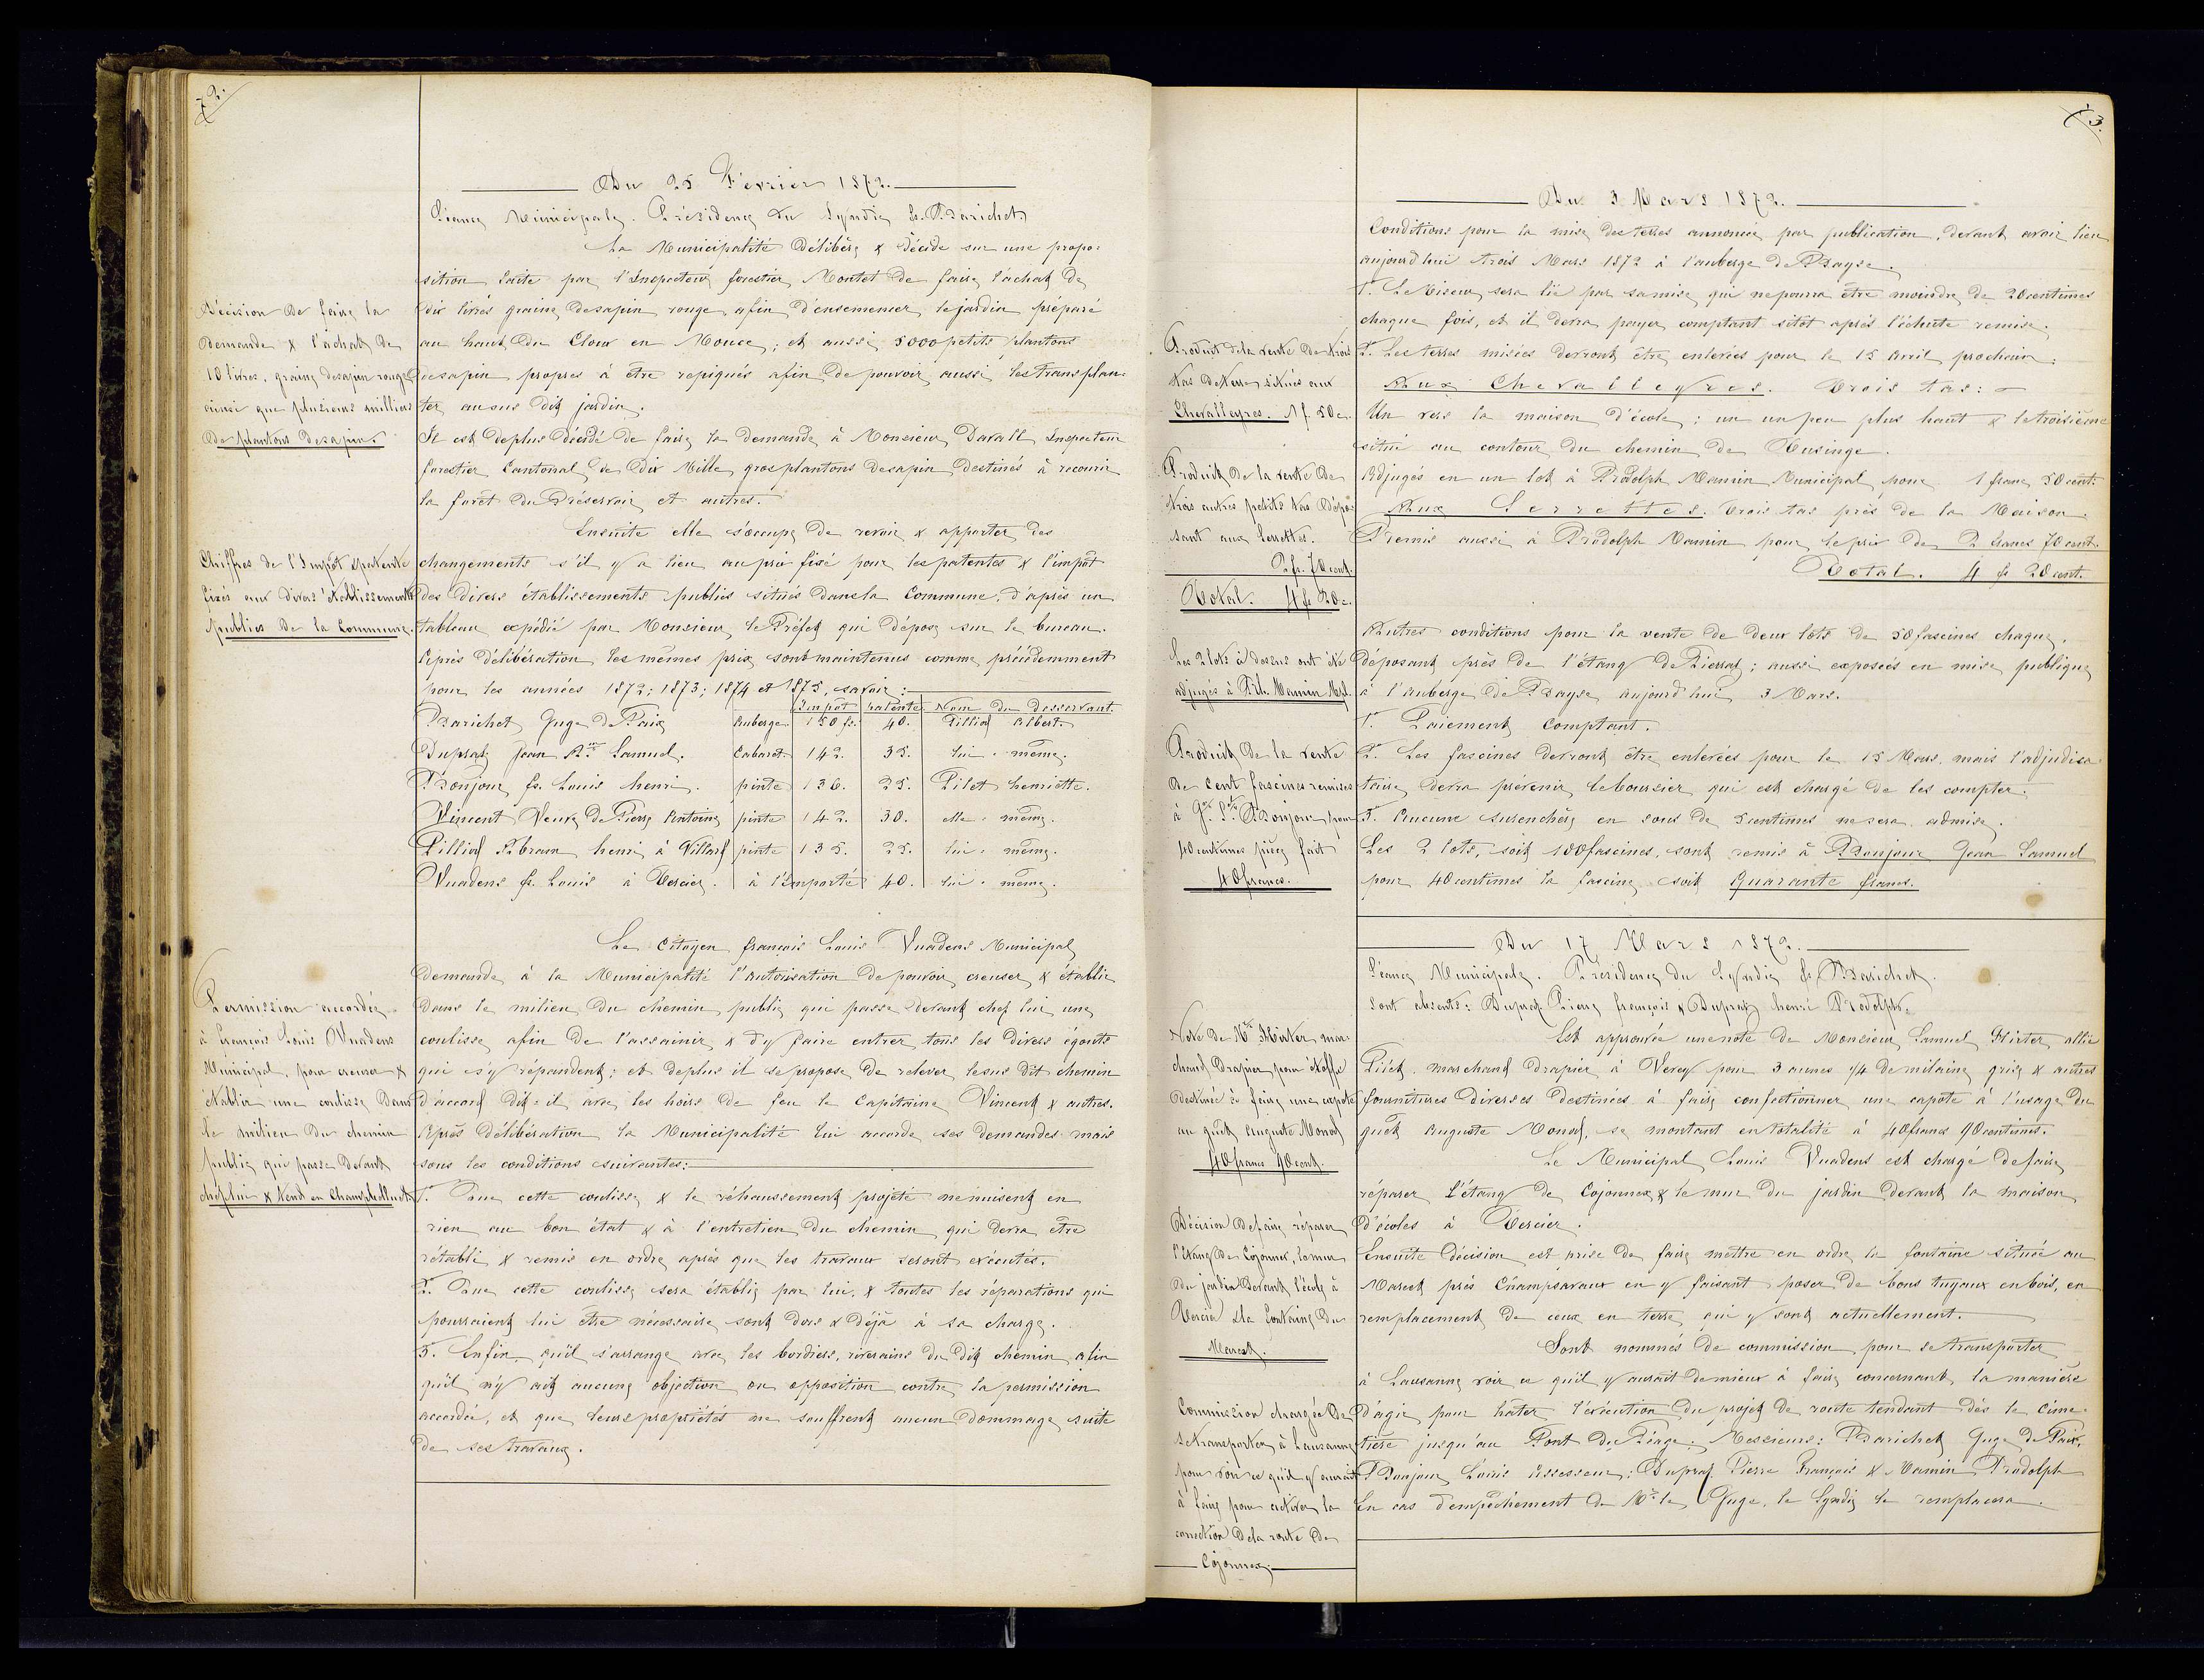 72.
Du 25 Février 1872.
Séance Municipale. Présidence du Syndic fs. Barichet
La Municipalité délibère & décide sur une propo=
sition faite par l'Inspecteur forestier Montet de faire l'achat de
dix livres graine de sapin rouge, afin d'ensemencer le jardin préparé
au haut du Cloux en Mouce; et aussi 5000 petits plantons
de sapin propres à être repiqués afin de pouvoir aussi les transplan=
ter au sus dit jardin.
Il est de plus décidé de faire la demande à Monsieur Davall Inspecteur
forestier Cantonal de Dix Mille gros plantons de sapin destinés à recouvrir
la forêt du Préservoir et autres.
Décision de faire la
demande & l'achat de
10 livres, graine de sapin rouge
ainsi que plusieurs milliers
de plantons de sapin.
Ensuite elle s'occupe de revoir & apporter des
changements s'il y a lieu au prix fixé pour les patentes & l'impôt
des divers établissements publics situés dans la Commune, d'après un
tableau expédié par Monsieur le Préfet qui dépose sur le bureau.
Après délibération les mêmes prix sont maintenus comme précédemment
pour les années 1872; 1873; 1874 et 1875, savoir:
Chiffres de l'Impôt & patente
fixés aux divers établissements
publics de la Commune.
Impôt patente Nom du Desservant.
Barichet Juge de Paix Auberge 150 fs. 40. Pilliod Albert.
Dupraz Jean Samuel. Cabaret 142. 35. lui-même.
Bonjour fs. Louis henri. pinte 136. 25. Pilet henriette.
Vincent Veuve de Pierre Antoine pinte 142. 30. elle-même.
Pilliod Abram henri à Villard pinte 135. 25. lui-même.
Vuadens fs. Louis à Tercier. à l'emporté 40. lui-même.
Le Citoyen françois Louis Vuadens Municipal
demande à la Municipalité l'autorisation de pouvoir creuser & établir
dans le milieu du chemin public qui passe devant chez lui une
coulisse afin de l'assainir & d'y faire entrer tous les divers égouts
qui s'y répandent; et de plus il se propose de relever le sus dit chemin
d'accord dit-il avec les hoirs de feu le Capitaine Vincent & autres.
Après délibération la Municipalité lui accorde ses demandes mais
sous les conditions suivantes:
Permission accordée
à françois Louis Vuadens
Municipal, pour creuser &
établir une coulisse dans
le milieu du chemin
public qui passe devant
chez lui & tend en
1°. Que cette coulisse & le réhaussement projeté ne nuisent en
rien au bon état & à l'entretien du chemin qui devra être
rétabli & remis en ordre après que les travaux seront exécutés.
2°. Que cette coulisse sera établie par lui, & toutes les réparations qui
pourraient lui être nécessaire sont dors & déjà à sa charge.
3°. Enfin, qu'il s'arrange avec les bordiers, riverains du dit chemin afin
qu'il n'y ait aucune objection ou opposition contre la permission
accordée, et que leurs propriétés ne souffrent aucun dommage suite
de ses travaux.
73.
Du 3 Mars 1872.
Conditions pour la mise des terres annoncée par publication, devant avoir lieu
aujourd'hui trois Mars 1872 à l'auberge de Bayse.
1°. Le Miseur sera lié par sa mise qui ne pourra être moindre de 20 centimes
chaque fois, et il devra payer comptant sitôt après l'échute remise.
2°. Les terres misées devront être enlevées pour le 15 Avril prochain.
Aux Chevalleyres. Trois tas:
Un vers la maison d'école; un un peu plus haut & le troisième
situé au contour du chemin de Tusinge.
Adjugés en un lot à Rodolph Mamin Municipal, pour 1 franc 50 cent.
Aux Serrettes. Trois tas près de la Maison.
Remis aussi à Rodolph Mamin pour le prix de 2 francs 70 cent.
Total. 4 fs 20 cent.
Produit de la vente de trois
tas de terre situés aux
Chevalleyres. 1 f. 50 c.
Produit de la vente de
trois autres petits tas dépo=
sant aux Serrettes.
2 fr. 70 cent.
Total. 4 fs 20 c.
Les 2 lots ci dessus ont été
adjugés à Rph. Mamin Mpl.
Autres conditions pour la vente de deux lots de 50 fascines chaque,
déposant près de l'étang de Pierraz; aussi exposées en mise publique
à l'auberge de Bayse aujourd'hui 3 Mars.
1°. Paiement Comptant.
2°. Les fascines devront être enlevées pour le 15 Mars, mais l'adjudica=
taire devra prévenir le boursier qui est chargé de les compter.
3°. Aucune surenchère en sous de 5 centimes ne sera admise.
Les 2 lots, soit 100 fascines, sont remis à Bonjour Jean Samuel
pour 40 centimes la fascine soit Quarante francs.
Produit de la vente
de cent fascines remises
à Bonjour pour
40 centimes pièce fait
40 francs.
Du 17 Mars 1872.
Séance Municipale. Présidence du Syndic fs Barichet.
Sont absents: Dupraz Pierre françois & Dupraz henri Rodolph.
Est approuvée une note de Monsieur Samuel Hirter, allié
Piéck, marchand drapier à Vevey pour 3 aunes 1/4 de milaine grise & autres
fournitures diverses destinées à faire confectionner une capote à l'usage du
guêt Auguste Monod, se montant en totalité à 40 francs 90 centimes.
Note de Mr Hirter mar=
chand Drapier pour étoffe
destinée à faire une capote
au guêt Auguste Monod
40 francs 90 cent.
Le Municipal Louis Vuadens est chargé de faire
réparer l'étang de Cojonnex & le mur du jardin devant la maison
d'écoles à Tercier.
Ensuite décision est prise de faire mettre en ordre la fontaine située au
Marest près Champsavaux en y faisant poser de bons tuyaux en bois, en
remplacement de ceux en terre qui y sont actuellement.
Décision de faire réparer
l'étang de Cojonnex, le mur
du jardin devant l'école à
Tercier & la fontaine du
Marest.
Sont nommés de commission pour se transporter
à Lausanne voir ce qu'il y aurait de mieux à faire concernant la manière
d'agir pour hâter l'exécution du projet de route tendant dès le Cime=
tière jusqu'au Pont du Péage: Messieurs: Barichet Juge de Paix,
Bonjour Louis Assesseur; Dupraz Pierre François & Mamin Rodolph
En cas d'empêchement de Mr le Juge, le Syndic le remplacera.
Commission chargée de
se transporter à Lausanne
pour voir ce qu'il y aurait
à faire pour activer la
correction de la route de
Cojonnex.